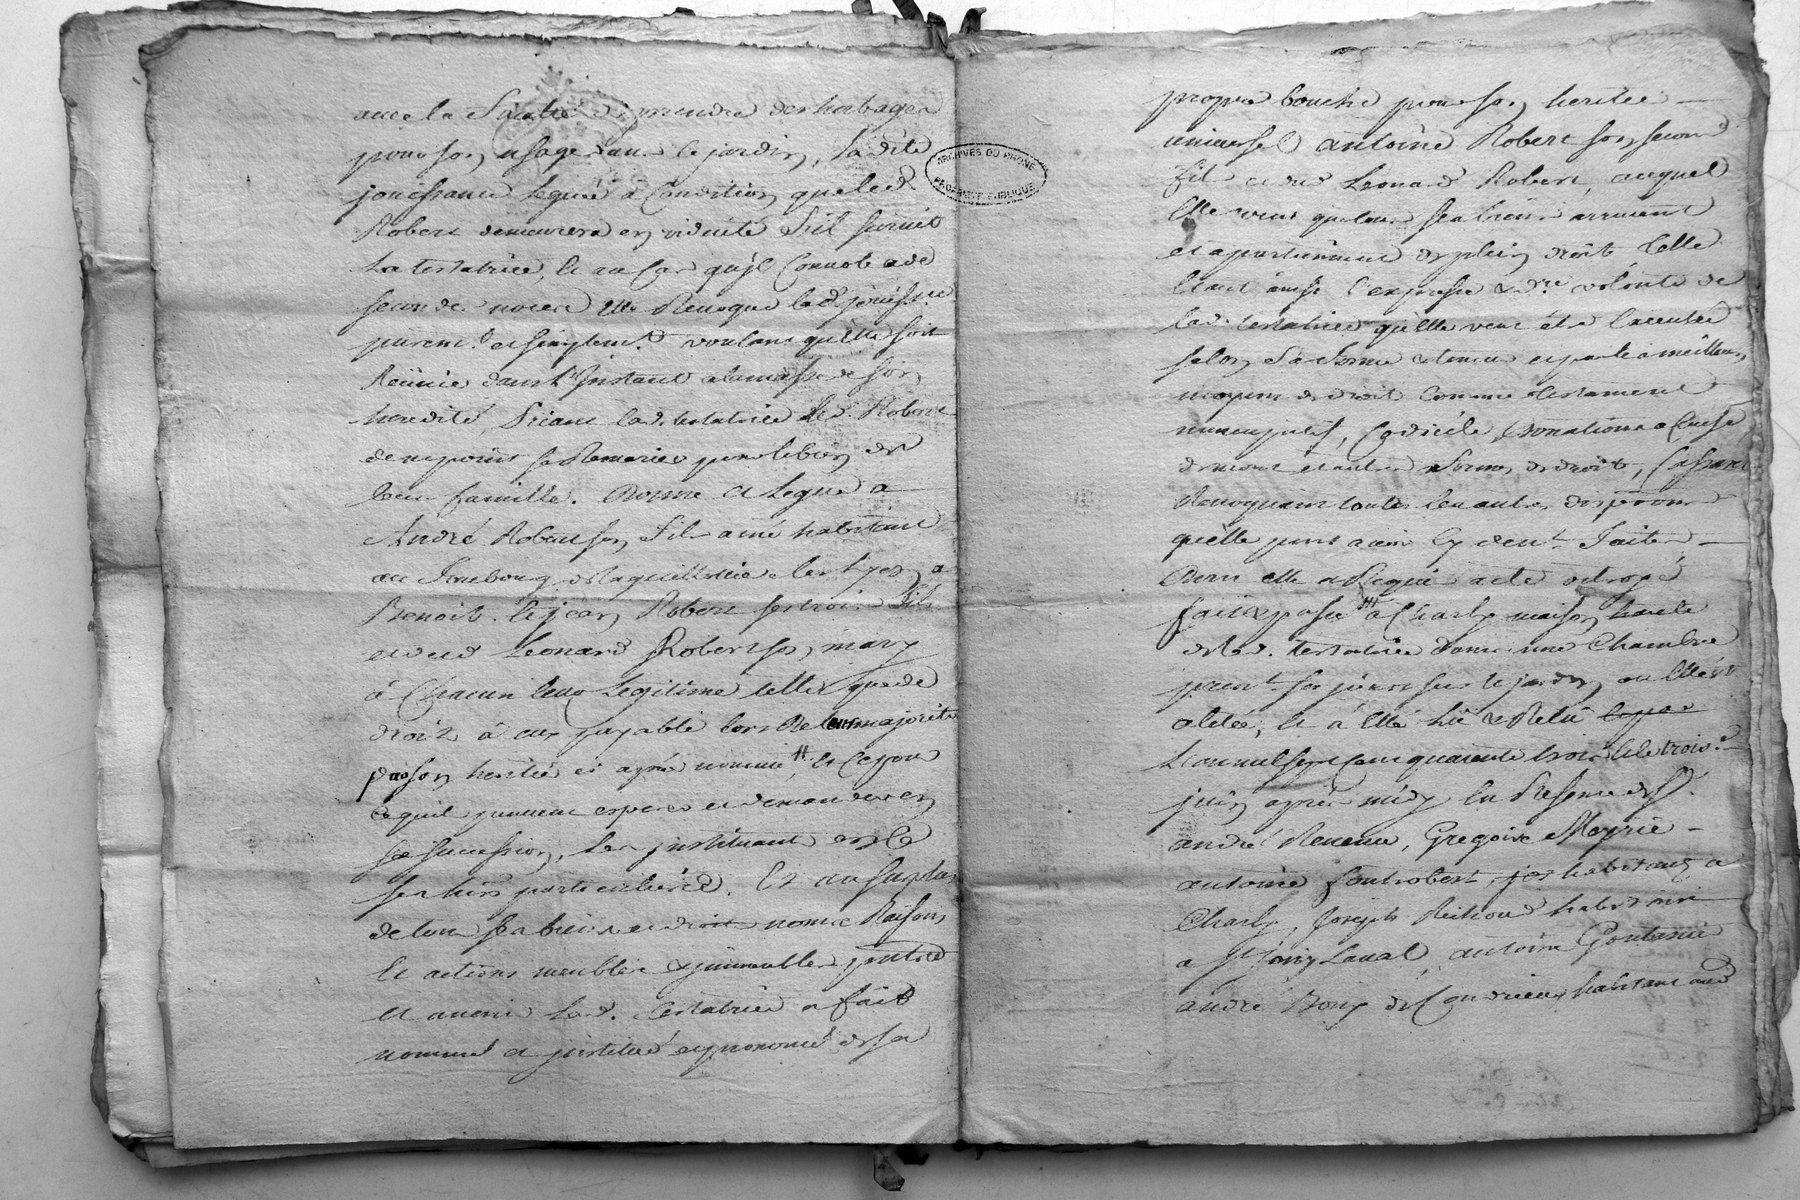 avec la faculté de prendre des herbages
pour son usage dans le jardin, la dite
jouissance leguée a Condition que led.
Robert demeurera en viduité s'il survit
la testatrice, et au Cas qu'il Convole a de
secondes noces elle Revoque lad. jouissce
puremt. et simplemt. voulant qu'elle soit
Reünie dans l'Instant a la masse de son
heredité, Priant lad. testatrice led. Robert
de ne point se Remarier pour le bien de
leur famille. Donne et Legue a
André Robert son fils ainé habitant
au faubourg de la guillotiere les Lyon, a
Benoit, et jean Robert ses trois fils
et dud. Leonard Robert son mary
à Chacun leur Legitime telle que de
droit à eux payable lors de leur majorité
par son heritier ci après nommé # et Ce pour
ce quil peuvent esperer et demander en
sa succession, les instituant en Ce
ses hers. particuliers. Et au surplus
de tous ses biens et droits noms Raisons
Et actions meubles & immeubles presents
et avenir lad. testatrice a fait
nommé et institué et prononcé de sa
ARCHIVES DU RHONE
PROPRIÉTÉ PUBLIQUE
propre bouche pour son heritier
universel antoine Robert son second
fils et dud. Leonard Robert, auquel
Elle veut que tous ses biens arrivent
et apartiennent de plein droit telle
étant ainsi l'expresse & dre. volonté de
lad. testatrice qu'elle veut être Executée
selon sa forme & teneur et par les meilleurs
moyens de droit Comme testament
nuncupatif, Codicile, Donation a Cause
de mort et autres formes de droit, Cassant
Revoquant toutes les autres dispositions
qu'elle peut avoir Cy devt. faites
Dont elle a Requis acte octroyé
fait & passé # à Charly maison
de lad. testatrice dans une Chambre
prent. ses jours sur le jardin ou Elle est
alitée, et à Elle lû & Relû
L'an mil sept Cent quarante trois et le trois.e
juin après midy En Presence de Sr.
andré Revenu, Gregoire Meyrie
antoine fontrobert, habitans a
Charly, Joseph habitant
a St. Genis Laval, antoine Gontanie
andré Roux de Condrieux habitant aud.